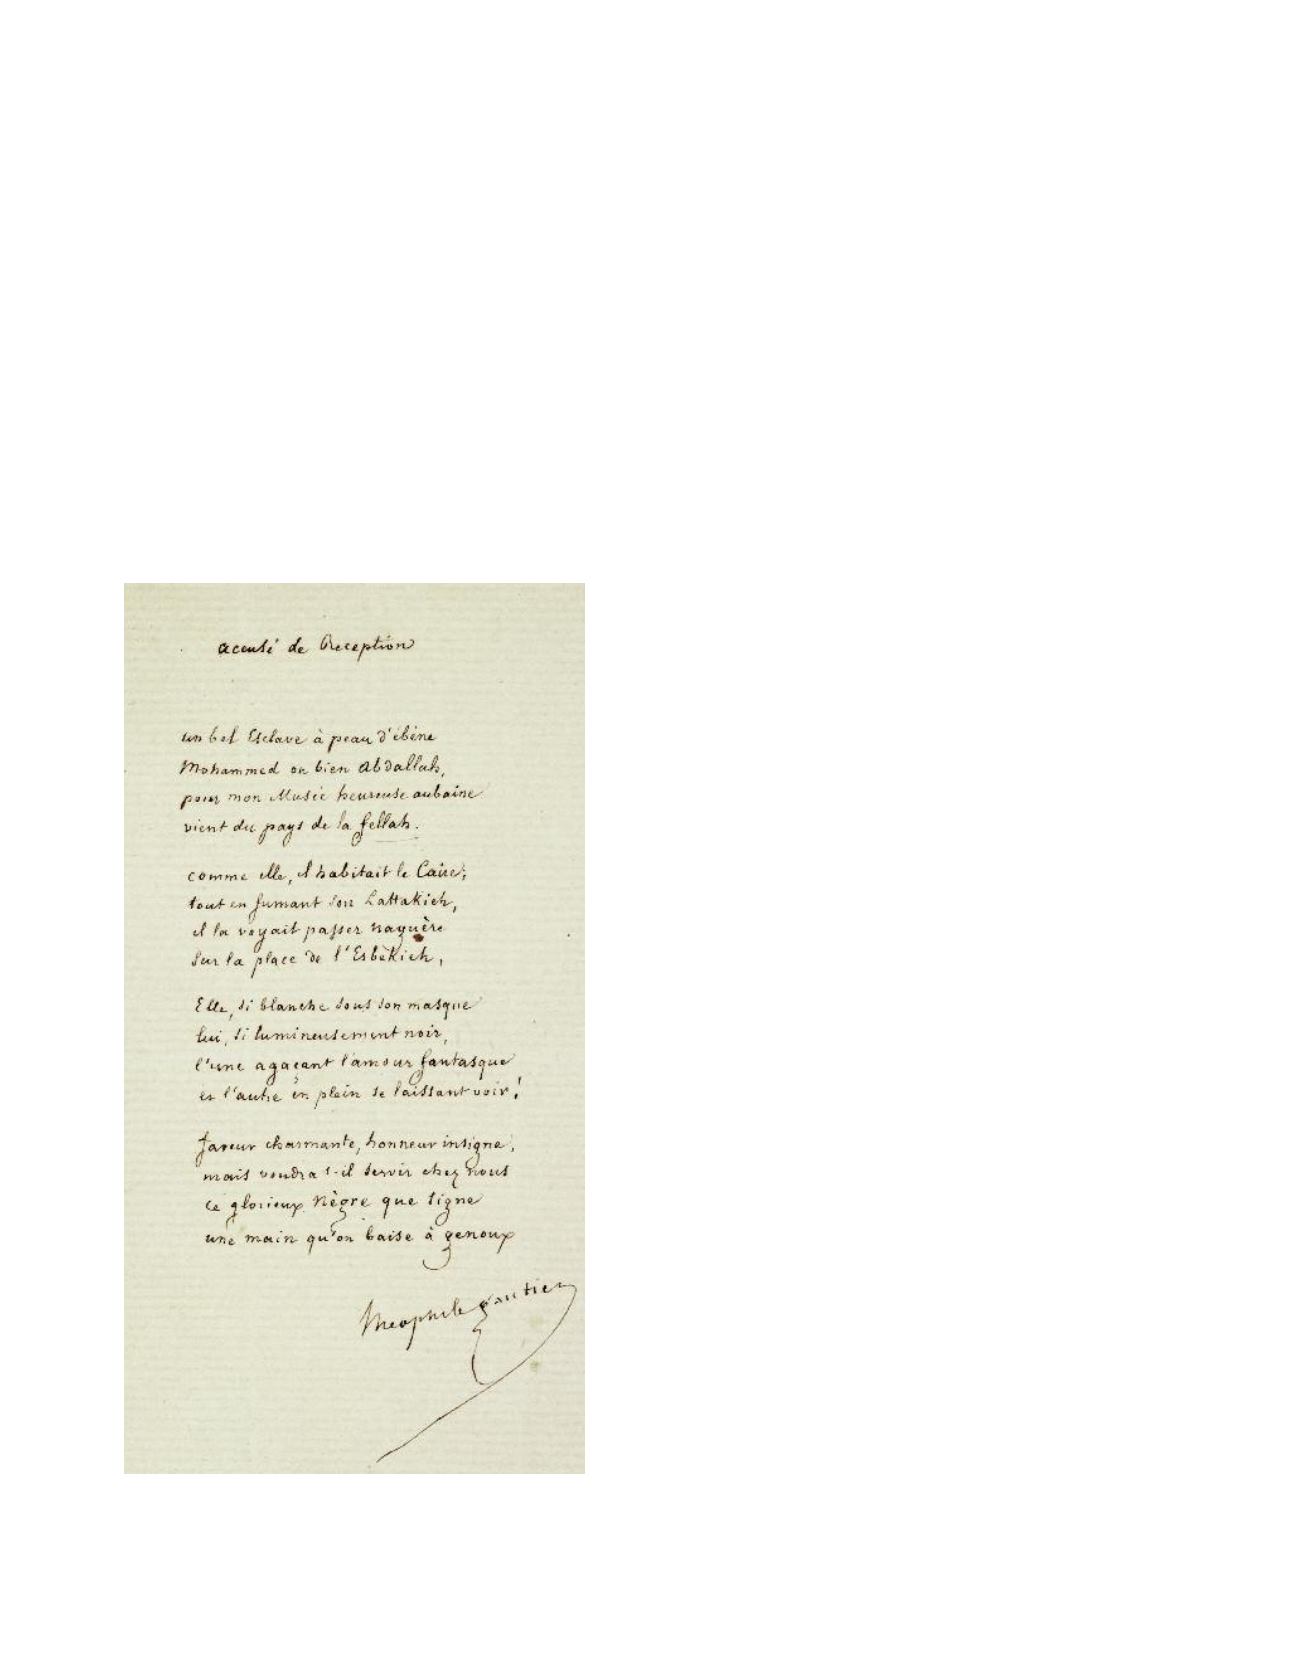 accusé de Reception
un bel Esclave à peau d'ébène
Mohammed ou bien Abdallah,
pour mon Musée heureuse aubaine
vient du pays de la fellah.
comme elle, il habitait le Caire;
tout en fumant son Lattakieh,
il la voyait passer naguère
sur la place de l'Esbèkieh,
Elle, si blanche sous son masque
lui, si lumineusement noir,
l'une agaçant l'amour fantasque
et l'autre en plein se laissant voir!
faveur charmante, honneur insigne,
mais voudra t-il servir chez nous
ce glorieux Nègre que signe
une main qu'on baise à genoux
Theophile gautier